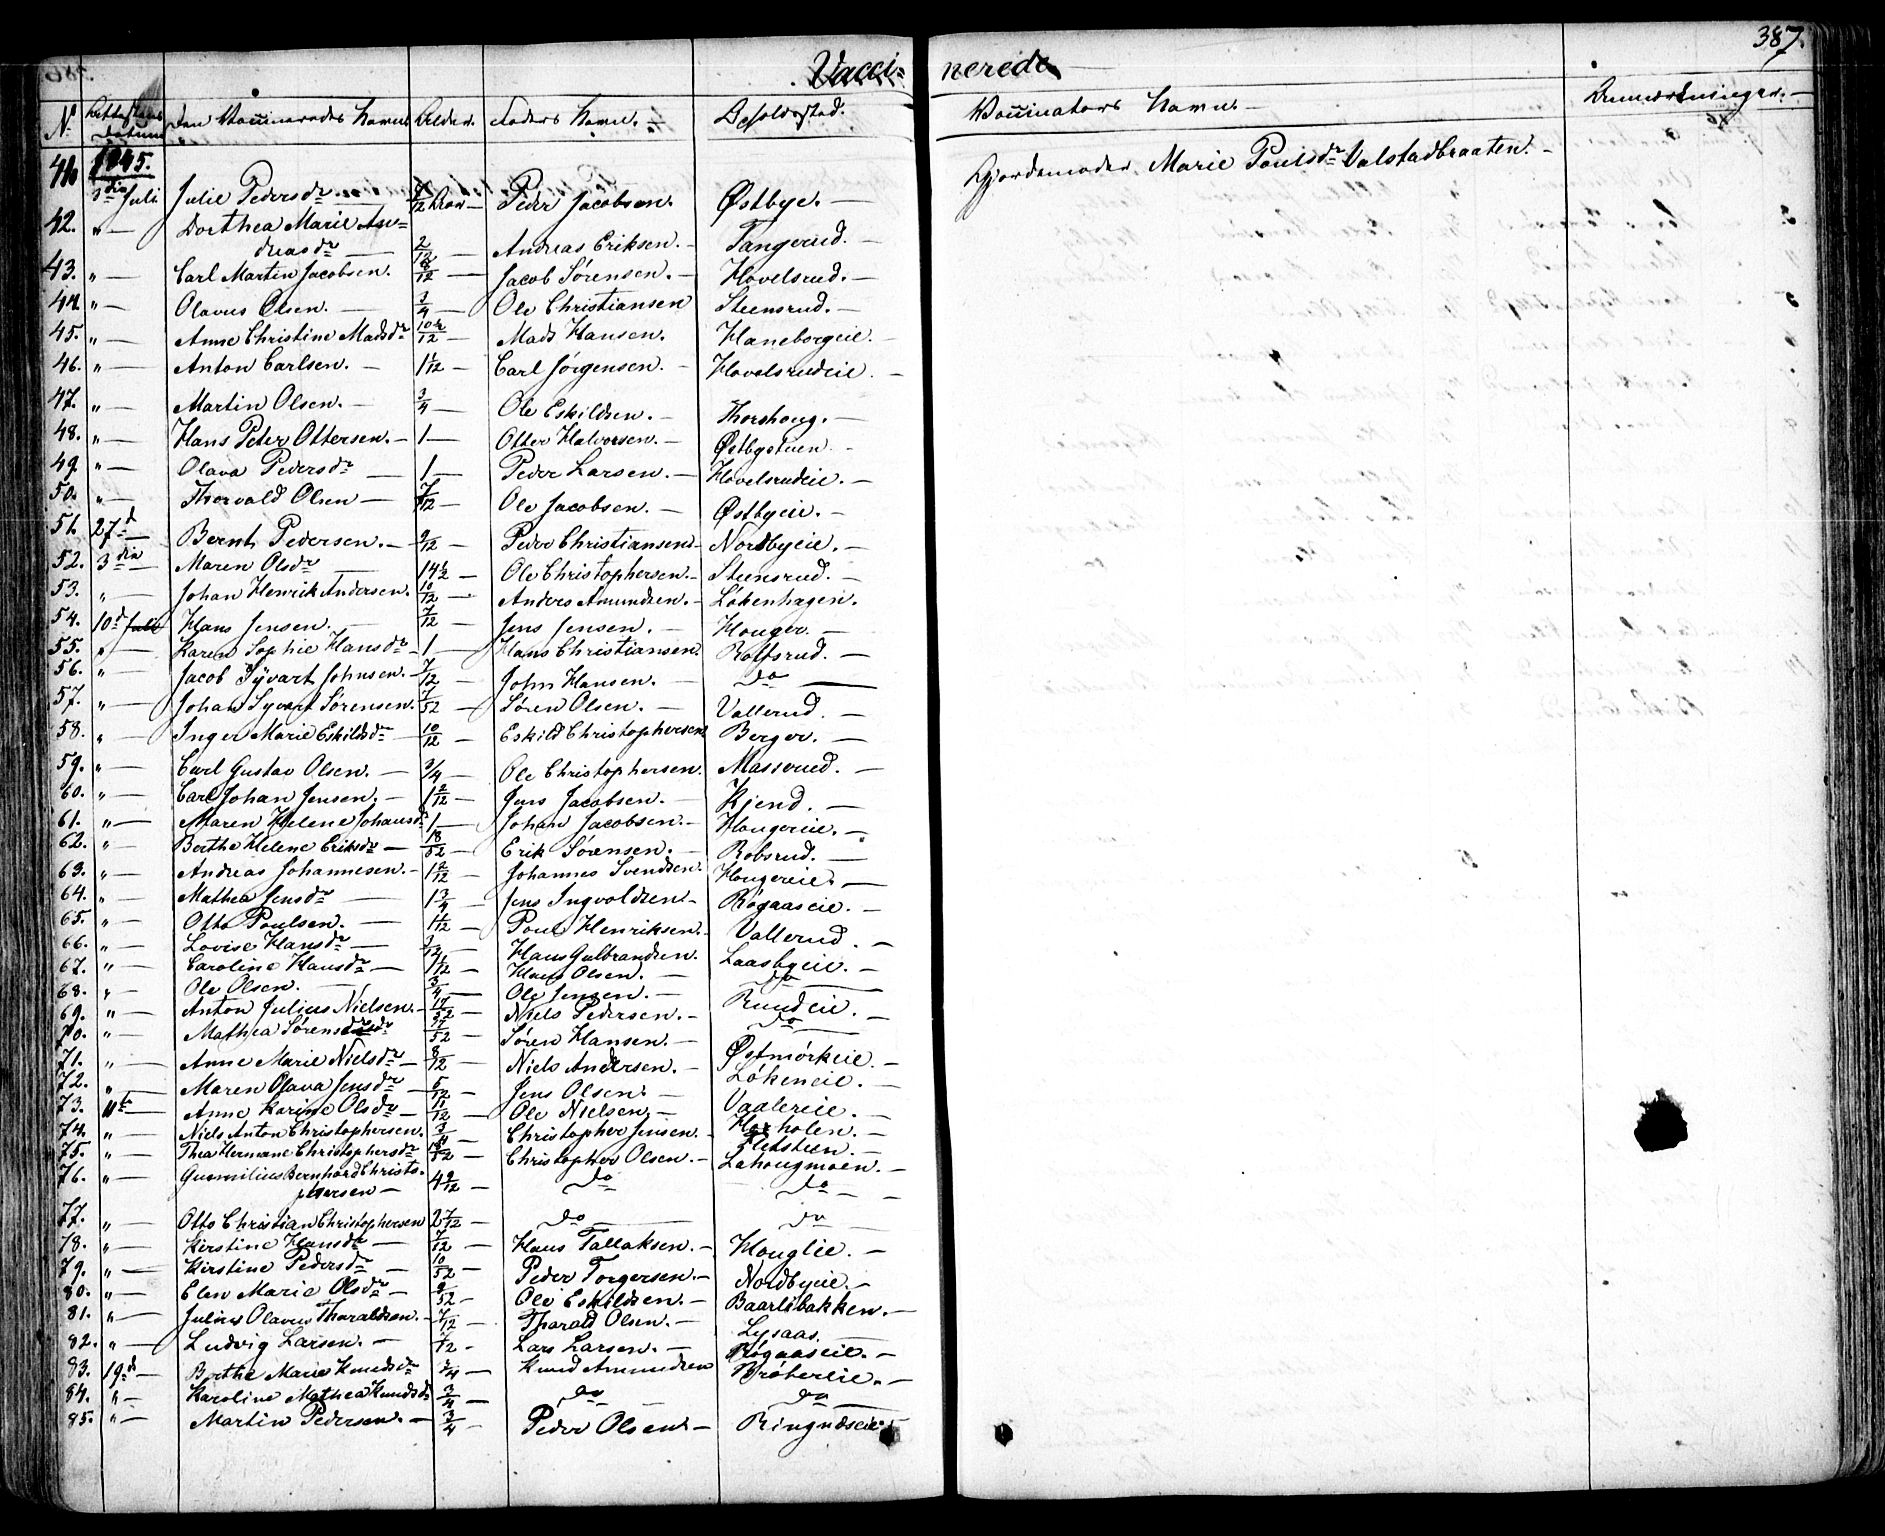 387.
Vacci= nerede
No Attestens Datum Den Vaccineredes Navn. Alder. Faders Navn. Opholdssted. Vaccinators Navn. Anmærkninger.
1845.
41. 3die Juli Julie Pedersdr 4/12 Peder Jacobsen. Østbye. Gjordemoder Marie Poulsdr Valstadbraaten.
42. " Dorthea Marie An=
dreasdr 2/12 Andreas Eriksen. Tangerud.
43. " Carl Martin Jacobsen. 8/12 Jacob Sørensen. Hovelsrud.
44. " Olavus Olsen. 3/4 Ole Christiansen Steensrud.
45. " Anne Christine Madsdr Mads Hansen. Haneborgeie.
46. " Anton Carlsen. 1 1/12 Carl Jørgensen. Hovelsrudeie.
47. " Martin Olsen. 3/4 Ole Eskildsen. Thorshoug.
48. " Hans Peter Ottersen. 1 Otter Halvorsen. Østbystuen
49. " Olava Pedersdr 1 Peder Larsen. Hovelsrudeie.
50. " Thorvald Olsen 7/12 Ole Jacobsen. Østbyeie.
51. 27d Bernt Pedersen. 9/12 Peder Christiansen Nordbyeie.
52. 3die Maren Olsdr 14 1/2 Ole Christophersen. Steensrud.
53. " Johan Henrik Andersen. 10/12 Anders Amundsen. Løkenhagen.
54. 10d Juli Hans Jensen. 7/12 Jens Jensen. Houger.
55. " Karen Sophie Hansdr 1 Hans Christiansen. Rolfsrud.
56. " Jacob Syvart Johnsen. 7/12 John Hansen. do
57. " Johan Syvert Sørensen. 7/52 Søren Olsen. Vallerud.
58. " Inger Marie Eskildsdr 10/12 Eskild Christophersen Berger.
59. " Carl Gustav Olsen. 3/4 Ole Christophersen. Masserud.
60. " Carl Johan Jensen. 1 2/12 Jens Jacobsen. Kjend.
61. " Maren Helene Johansdr 1 Johan Jacobsen. Hougereie.
62. " Berthe Helene Eriksdr 18/52 Erik Sørensen. Robsrud.
63. " Andreas Johannesen. 1 2/12 Johannes Svendsen. Hougereie.
64. " Mathea Jensdr 1 3/4 Jens Ingvoldsen. Røgaaseie.
65. " Otto Poulsen. 1 1/12 Poul Henriksen. Vallerud.
66. " Lovise Hansdr 3/12 Hans Gulbrandsen. Laasbyeie.
67. " Caroline Hansdr 1 1/12 Hans Olsen. do
68. " Ole Olsen. 3/4 Ole Jensen. Rundeie.
69. " Anton Julius Nielsen. 17/52 Niels Pedersen. do
70. " Mathea Sørensdr 37/52 Søren Hansen.
71. " Anne Marie Nielsdr 8/12 Niels Andersen. Østmørkeie.
72. " Maren Olava Jensdr 5/12 Jens Olsen. Løkeneie.
73. 11te Anne Karine Olsdr 11/12 Ole Nielsen. Vaalereie.
74. " Niels Anton Christophersen. 3/4 Christopher Jensen. Herholen.
75. " Thea Hermane Christophersdr Christopher Olsen. Lahougmoen.
76. " Gunnilius Bernhard Christo-
phersen 4 9/12 do do
77. " Otto Christian Christophersen 2 7/12 do do
78. " Kirstine Hansdr 7/12 Hans Tallaksen. Houglie.
79. " Kirstine Pedersdr 10/52 Peder Torgersen. Nordbyeie.
80. " Elen Marie Olsdr 9/52 Ole Eskildsen. Baarlibakken.
81. " Julius Olavus Tharaldsen. 7/12 Tharald Olsen. Lysaas.
82. " Ludvig Larsen. 7/12 Lars Larsen. Røgaaseie.
83. 19d Berthe Marie Knudsdr 3/4 Knud Amundsen Brøtereie.
84. " Karoline Mathea Knudsdr 3/4 do do
85. " Martin Pedersen. 3/4 Peder Olsen. Ringnæseie.